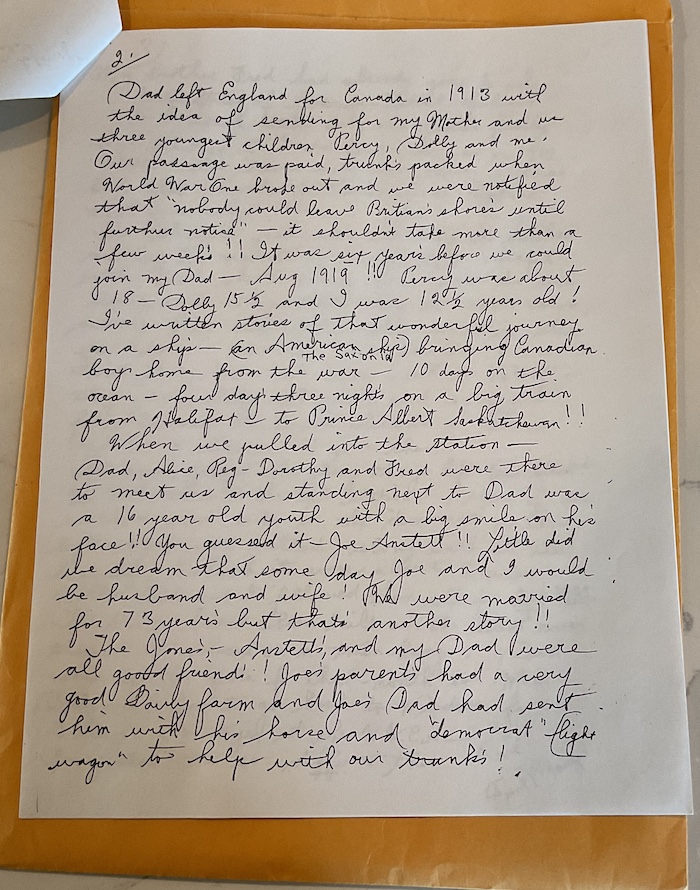 2.
Dad left England for Canada in 1913 with
the idea of sending for my Mother and us
three youngest children Percy, Dolly and me.
Our passage was paid, trunks packed when
World War One broke out and we were notified
that "nobody could leave Britian's shores until
further notise" – it shouldn't take more than a
few weeks!! It was six years before we could
join my Dad – Aug 1919 !! Percy was about
18 – Dolly 15 1/2 and I was 12 1/2 years old!
I've written stories of that wonderful journey
on a ship – (an American ship) bringing Canadian
The Saxonia
boys home from the war 10 days on the
ocean – four days three nights on a big train
from Halifax – to Prince Albert Saskatchewan!!
When we pulled into the station –
Dad, Alice, Peg – Dorothy and Fred were there
to meet us and standing next to Dad was
a 16 year old youth with a big smile on his
face!! You guessed it – Joe Anstett!! Little did
we dream that some day Joe and I would
be husband and wife! We were married
for 73 years but thats another story!!
The Jones', – Anstett's, and my Dad were
all good friends! Joe's parents had a very
good Dairy farm and Joe's Dad had sent
him with his horse and "democrat" (light
wagon" to help with our trunks!